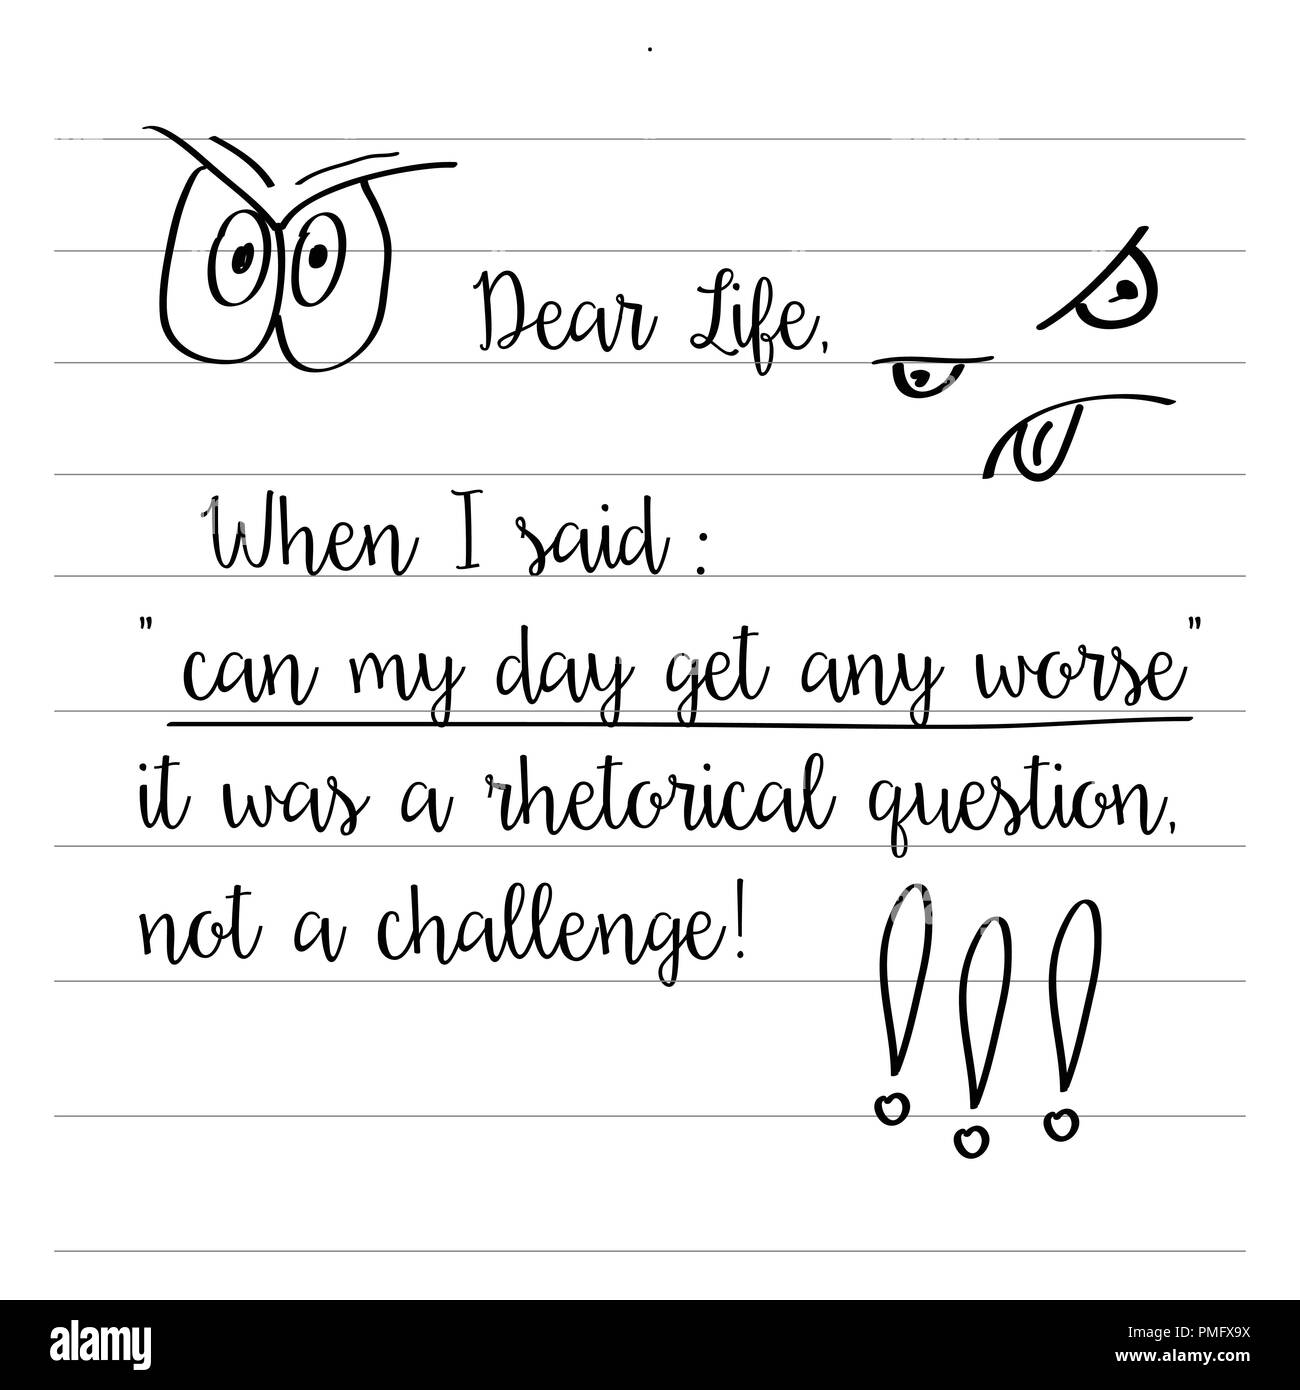 Dear Life,
When I said :
" can my day get any worse "
it was a rhetorical question,
not a challenge!
!!!
alamy
alamy
Image ID: PMFX9X
www.alamy.com